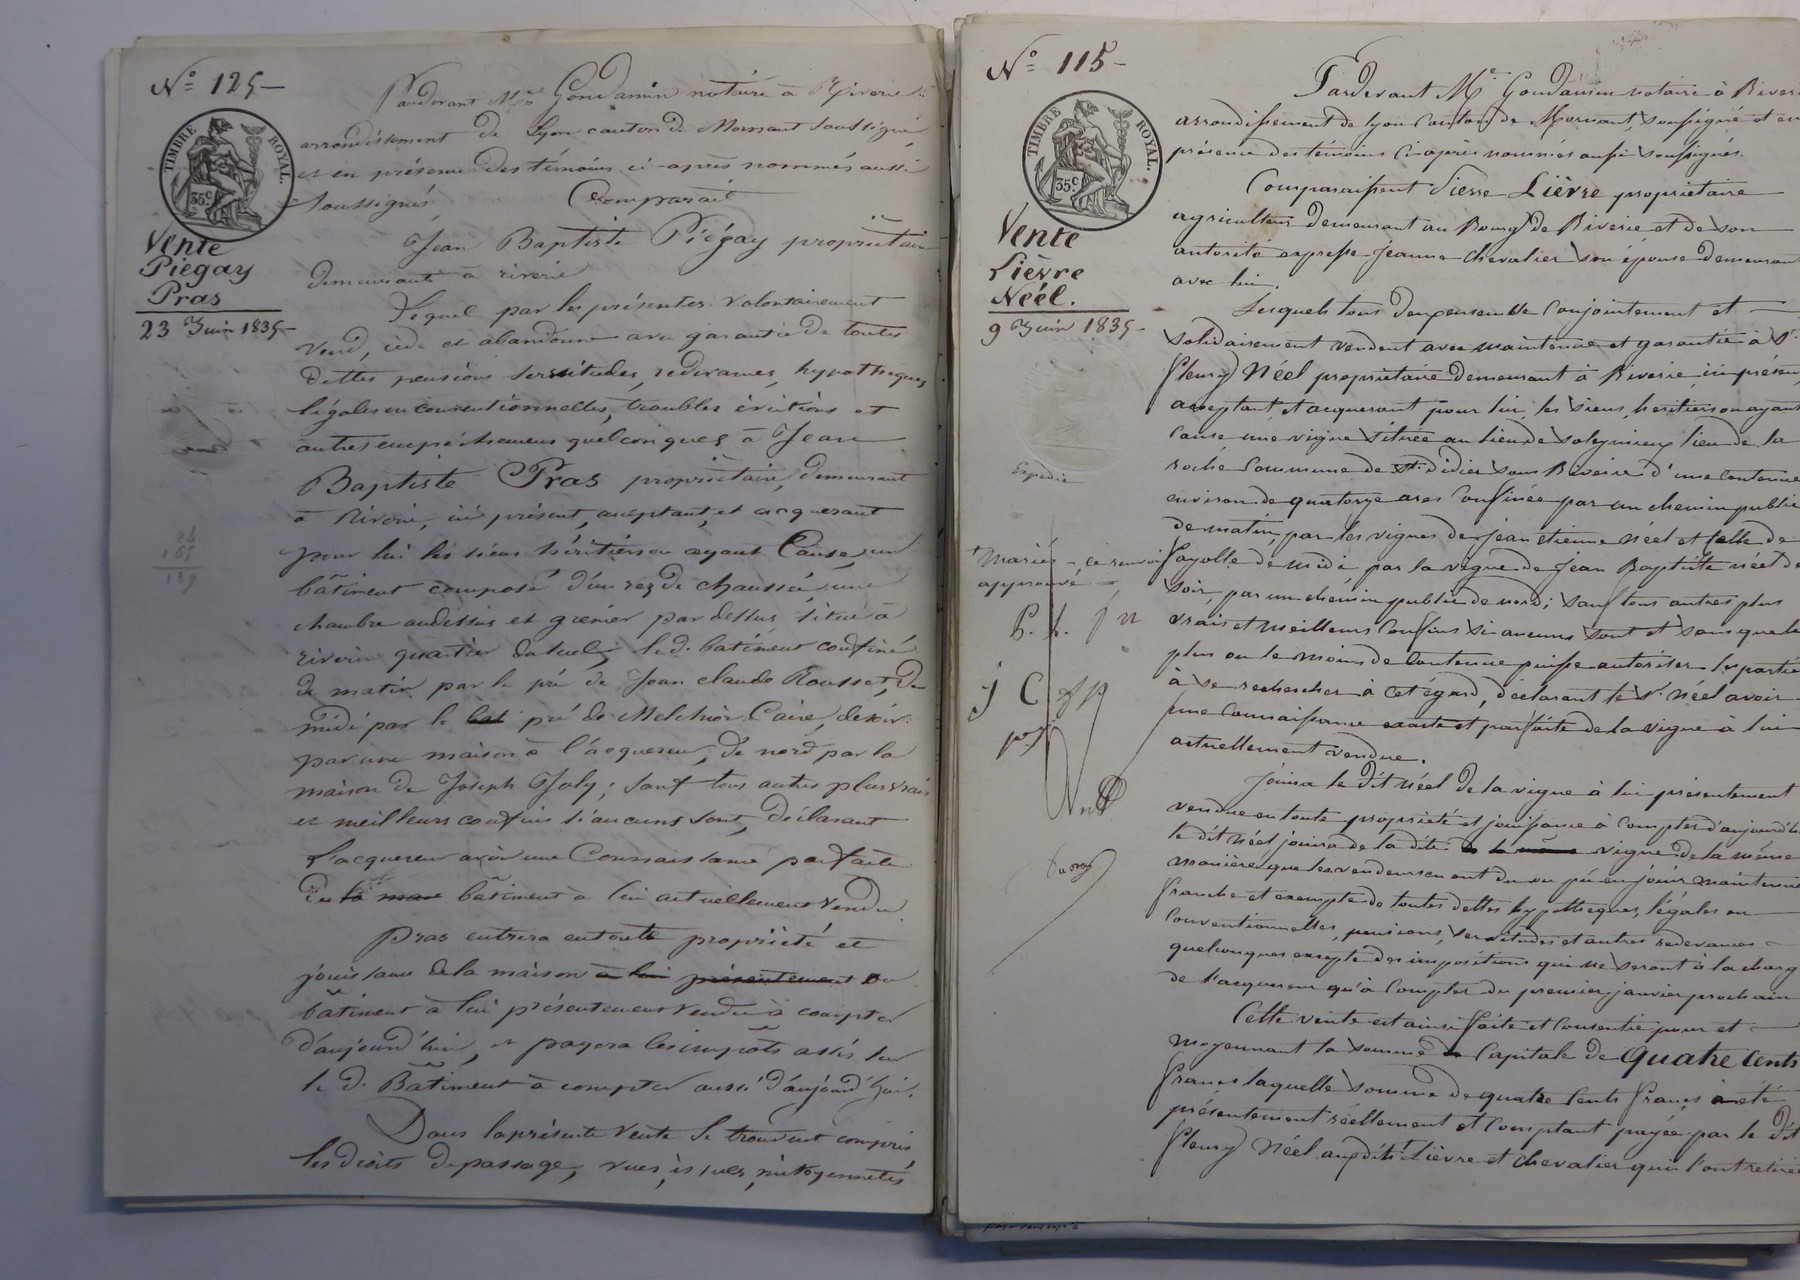 N° 125
TIMBRE ROYAL.
35c
Vente
Piégay
Pras
23 Juin 1835
Pardevant Me Gondamin notaire à Riverie
arrondissement de Lyon canton de Mornant soussigné
et en présence des témoins ci-après nommés aussi
soussignés Comparait
Jean Baptiste Piégay propriétaire
demeurant à riverie
Lequel par les présentes volontairement
vend, cède et abandonne avec garantie de toutes
dettes pensions servitudes, redevances, hypothèques,
légales ou conventionnelles, troubles évictions et
autres empêchemens quelconques à Jean
Baptiste Pras propriétaire, demeurant
à Riverie, ici présent, acceptant, et acquerant
pour lui les siens héritiers ou ayant Cause, un
bâtiment composé d'un rez de chaussée, une
chambre audessus et grenier par dessus situé à
riverie quartier le d. bâtiment confiné
de matin par le pré de Jean claude Rousset, de
midi par le bat pré de Melchior Caire, de soir
par une maison à l'acquereur, de nord par la
maison de Joseph Joly; sauf tous autres plus vrais
et meilleurs confins si aucuns sont, déclarant
l'acquereur avoir une Connaissance parfaite
du bâtiment à lui actuellement vendu.
Pras entrera en toute propriété et
jouissance de la maison à lui présentement ou
bâtiment à lui présentement vendu à compter
d'aujourd'hui, et payera les impôts assis sur
le d. Bâtiment à compter aussi d'aujourd'hui.
Dans la présente vente se trouvent compris
les droits de passage, vues, issues, mitoyennetés
N° 115
TIMBRE ROYAL.
35c
Vente
Lièvre
Néel.
9 Juin 1835
Expedié
Mariés - ce renvoi
approuvé
P. L. f n
J C
Pardevant Me Gondamin notaire à Riverie
arrondissement de Lyon Canton de Mornant, soussigné et en
présence des témoins ci après nommés aussi soussignés.
Comparaissent Pierre Lièvre propriétaire
agriculteur demeurant au Bourg de Riverie et de son
autorité expresse Jeanne Chevalier son épouse demeurant
avec lui.
Lesquels tous deux ensemble Conjointement et
solidairement vendent avec maintenue et garantie à Sr
fleury Néel propriétaire demeurant à Riverie, ici présent,
acceptant, et acquerant pour lui, les siens, héritiers ou ayant
Cause une vigne située au lieu de soleymieux lieu de la
roche Commune de St Didier sous Riverie d'une Contenue
environ de quatorze ares Confinée par un chemin public
de matin, par les vignes de jean étienne Néel et celle de
fayolle de midi par la vigne de jean Baptiste néel de
soir, par un chemin public de nord; sauf tous autres plus
vrais et meilleurs Confins si aucuns sont et sans que le
plus ou le moins de Contenue puisse autoriser les parties
à se rechercher à cet égard, déclarant le Sr Néel avoir
une Connaissance exacte et parfaite de la vigne à lui
actuellement vendue.
jouira le dit Néel de la vigne à lui présentement
vendue en toute propriété et jouissance à Compter d'aujourd'hui
le dit Néel jouira de la dite vigne de la même
manière que les vendeurs en ont du ou pu en jouir maintenue
franche et exempte de toutes dettes hypothèques, légales ou
Conventionnelles, pensions, servitudes et autres redevances
quelconques excepté des impositions qui ne seront à la charge
de l'acquereur qu'à Compter du premier janvier prochain
Cette vente est ainsi faite et Consentie pour et
moyennant la somme Capitale de quatre cents
francs laquelle somme de quatre Cents francs a été
présentement réellement et Comptant payée par le dit
fleury Néel auxdits Lièvre et Chevalier qui l'ont retirée